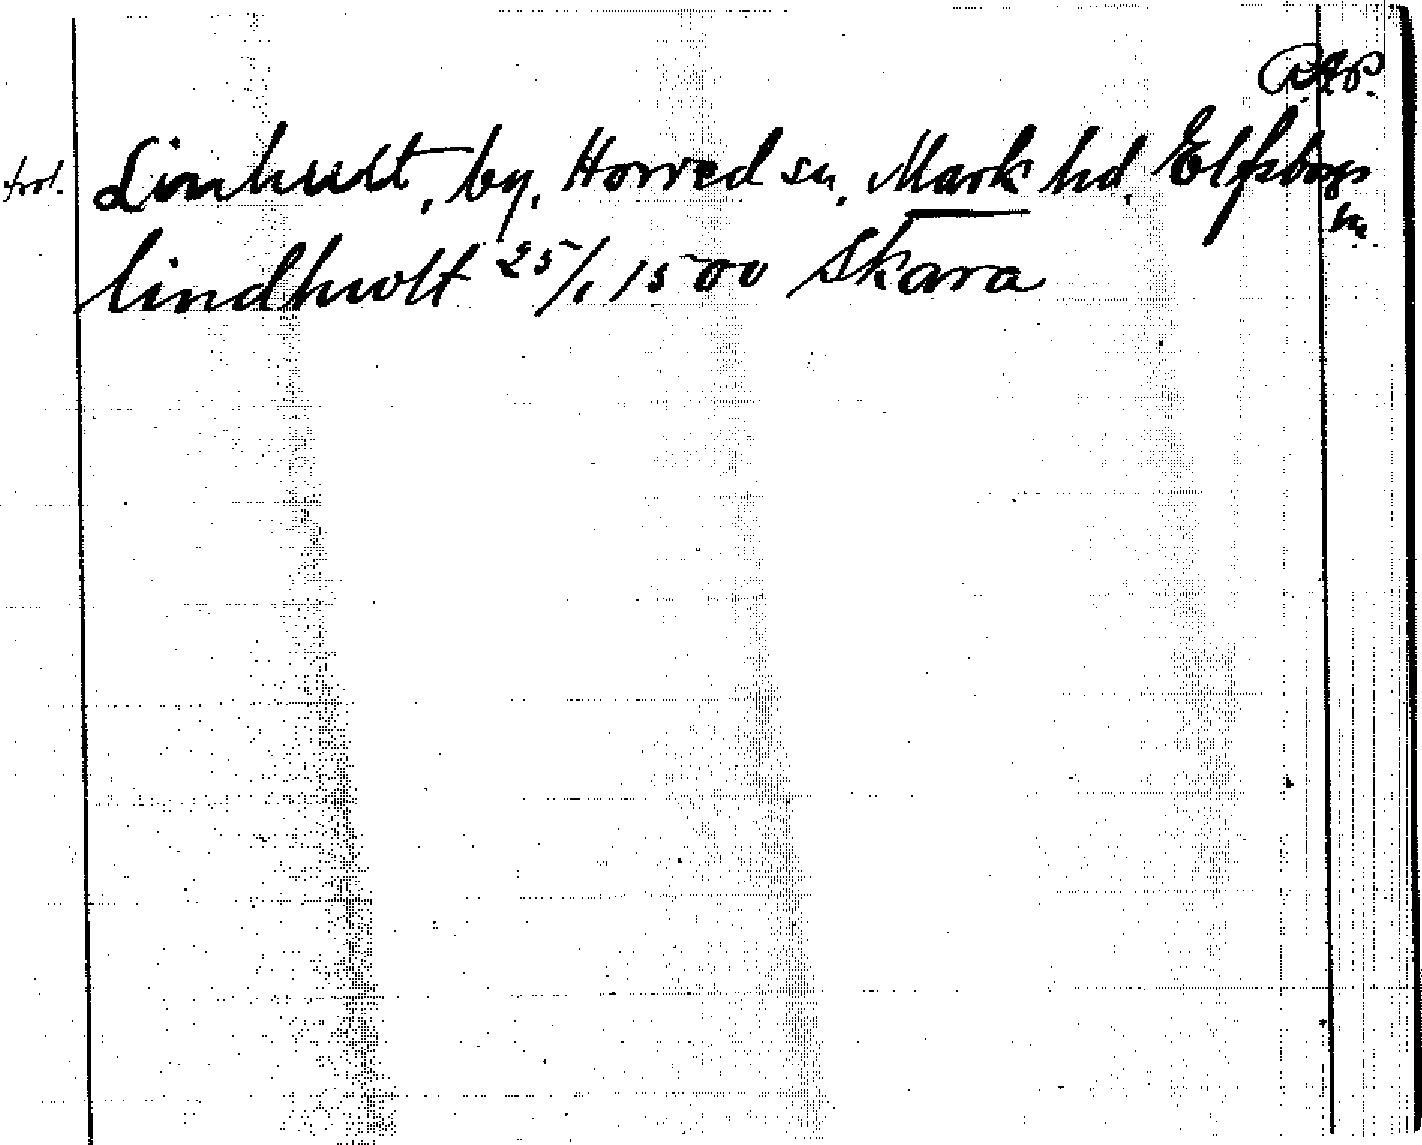 RAP.
trol. Linhult, by, Horred sn, Mark hd, Elfsborgs
ln.
lindhwolt 25/1 1500 Skara